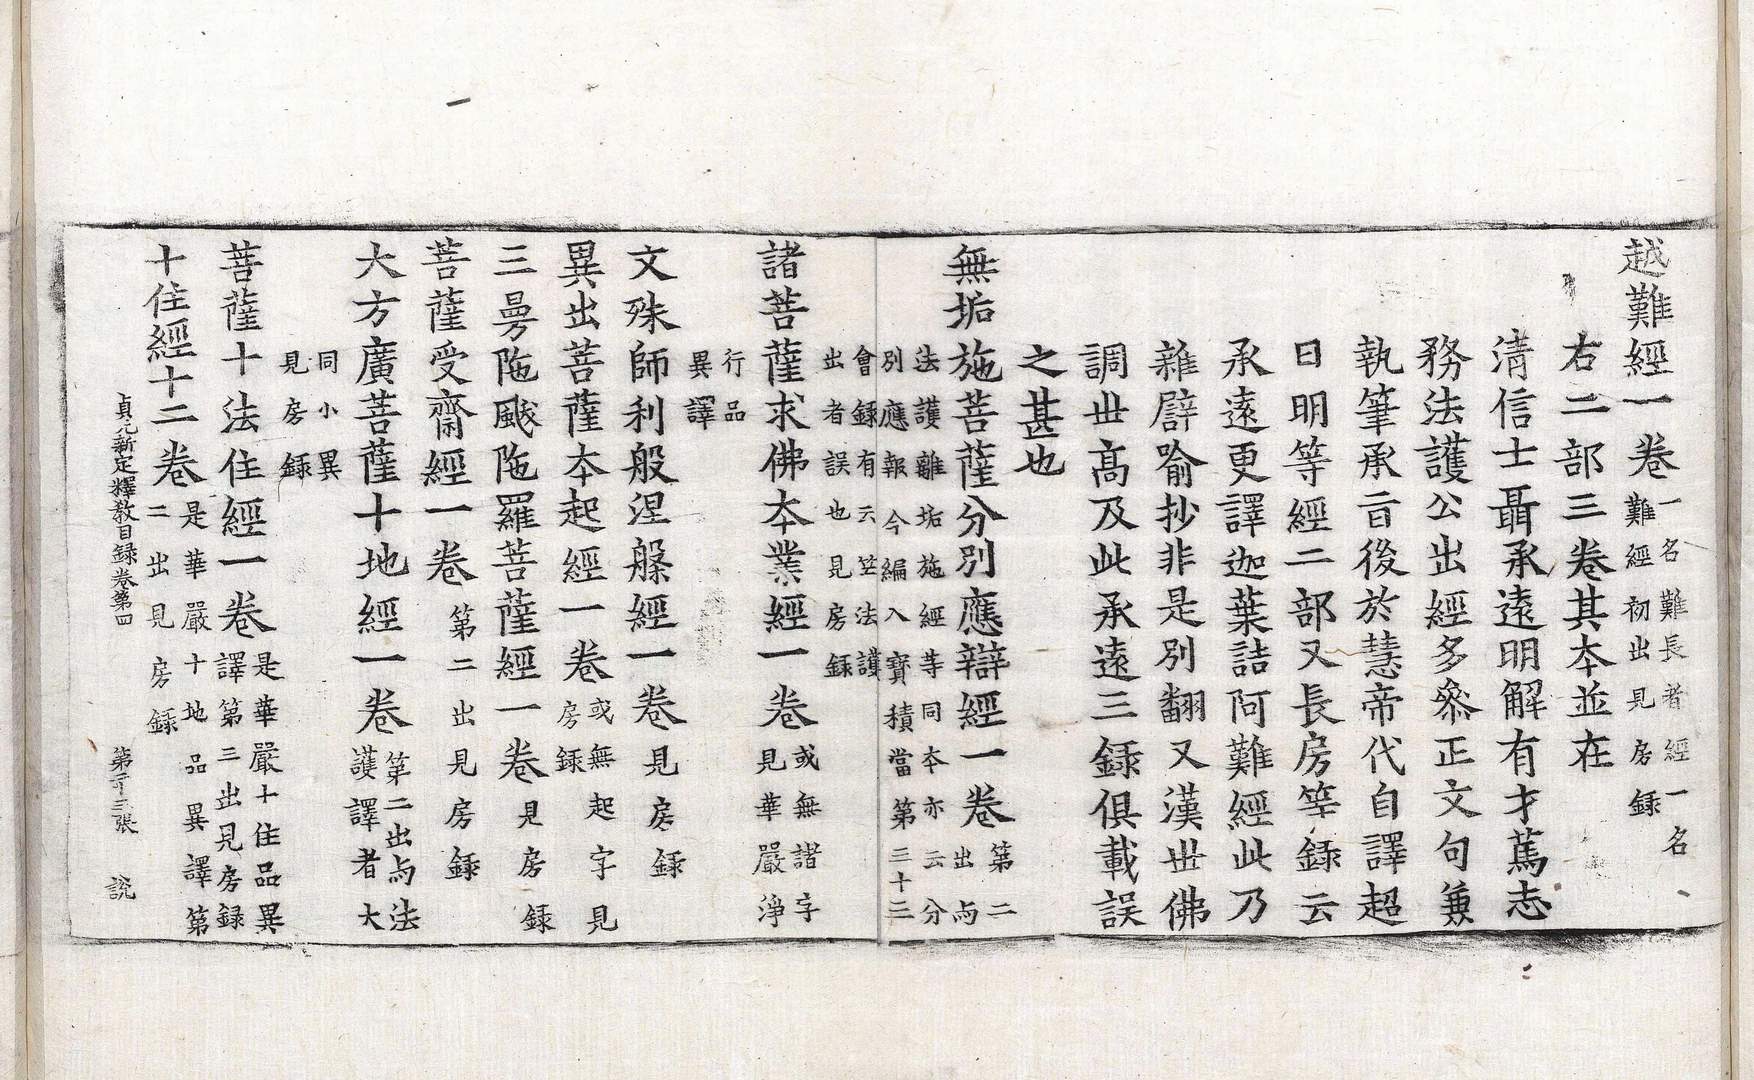 越難經一卷一名難長者經一名難經初出見房録
右二部三卷其本並在
清信士聶承遠明解有才篤志
務法護公出經多叅正文句兼
執筆承旨後於慧帝代自譯超
日明等經二部又長房等録云
承遠更譯迦葉詰阿難經此乃
雜譬喻抄非是別翻又漢世佛
調世高及此承遠三録俱載誤
之甚也
無垢施菩薩分別應辯經一卷第二出與
法護離垢施經等同本亦云分
別應報今編入寶積當第三十三
會録有云竺法護
出者誤也見房録
諸菩薩求佛本業經一卷或無諸字見華嚴淨
行品
異譯
文殊師利般涅槃經一卷見房録
異出菩薩本起經一卷或無起字見房録
三曼陁颰陁羅菩薩經一卷見房録
菩薩受齋經一卷第二出見房録
大方廣菩薩十地經一卷第二出与法護譯者大
同小異
見房録
菩薩十法住經一卷是華嚴十住品異譯第三出見房録
十住經十二卷是華嚴十地品異譯第二出見房録
貞元新定釋教目録卷第四 第二十三張 說